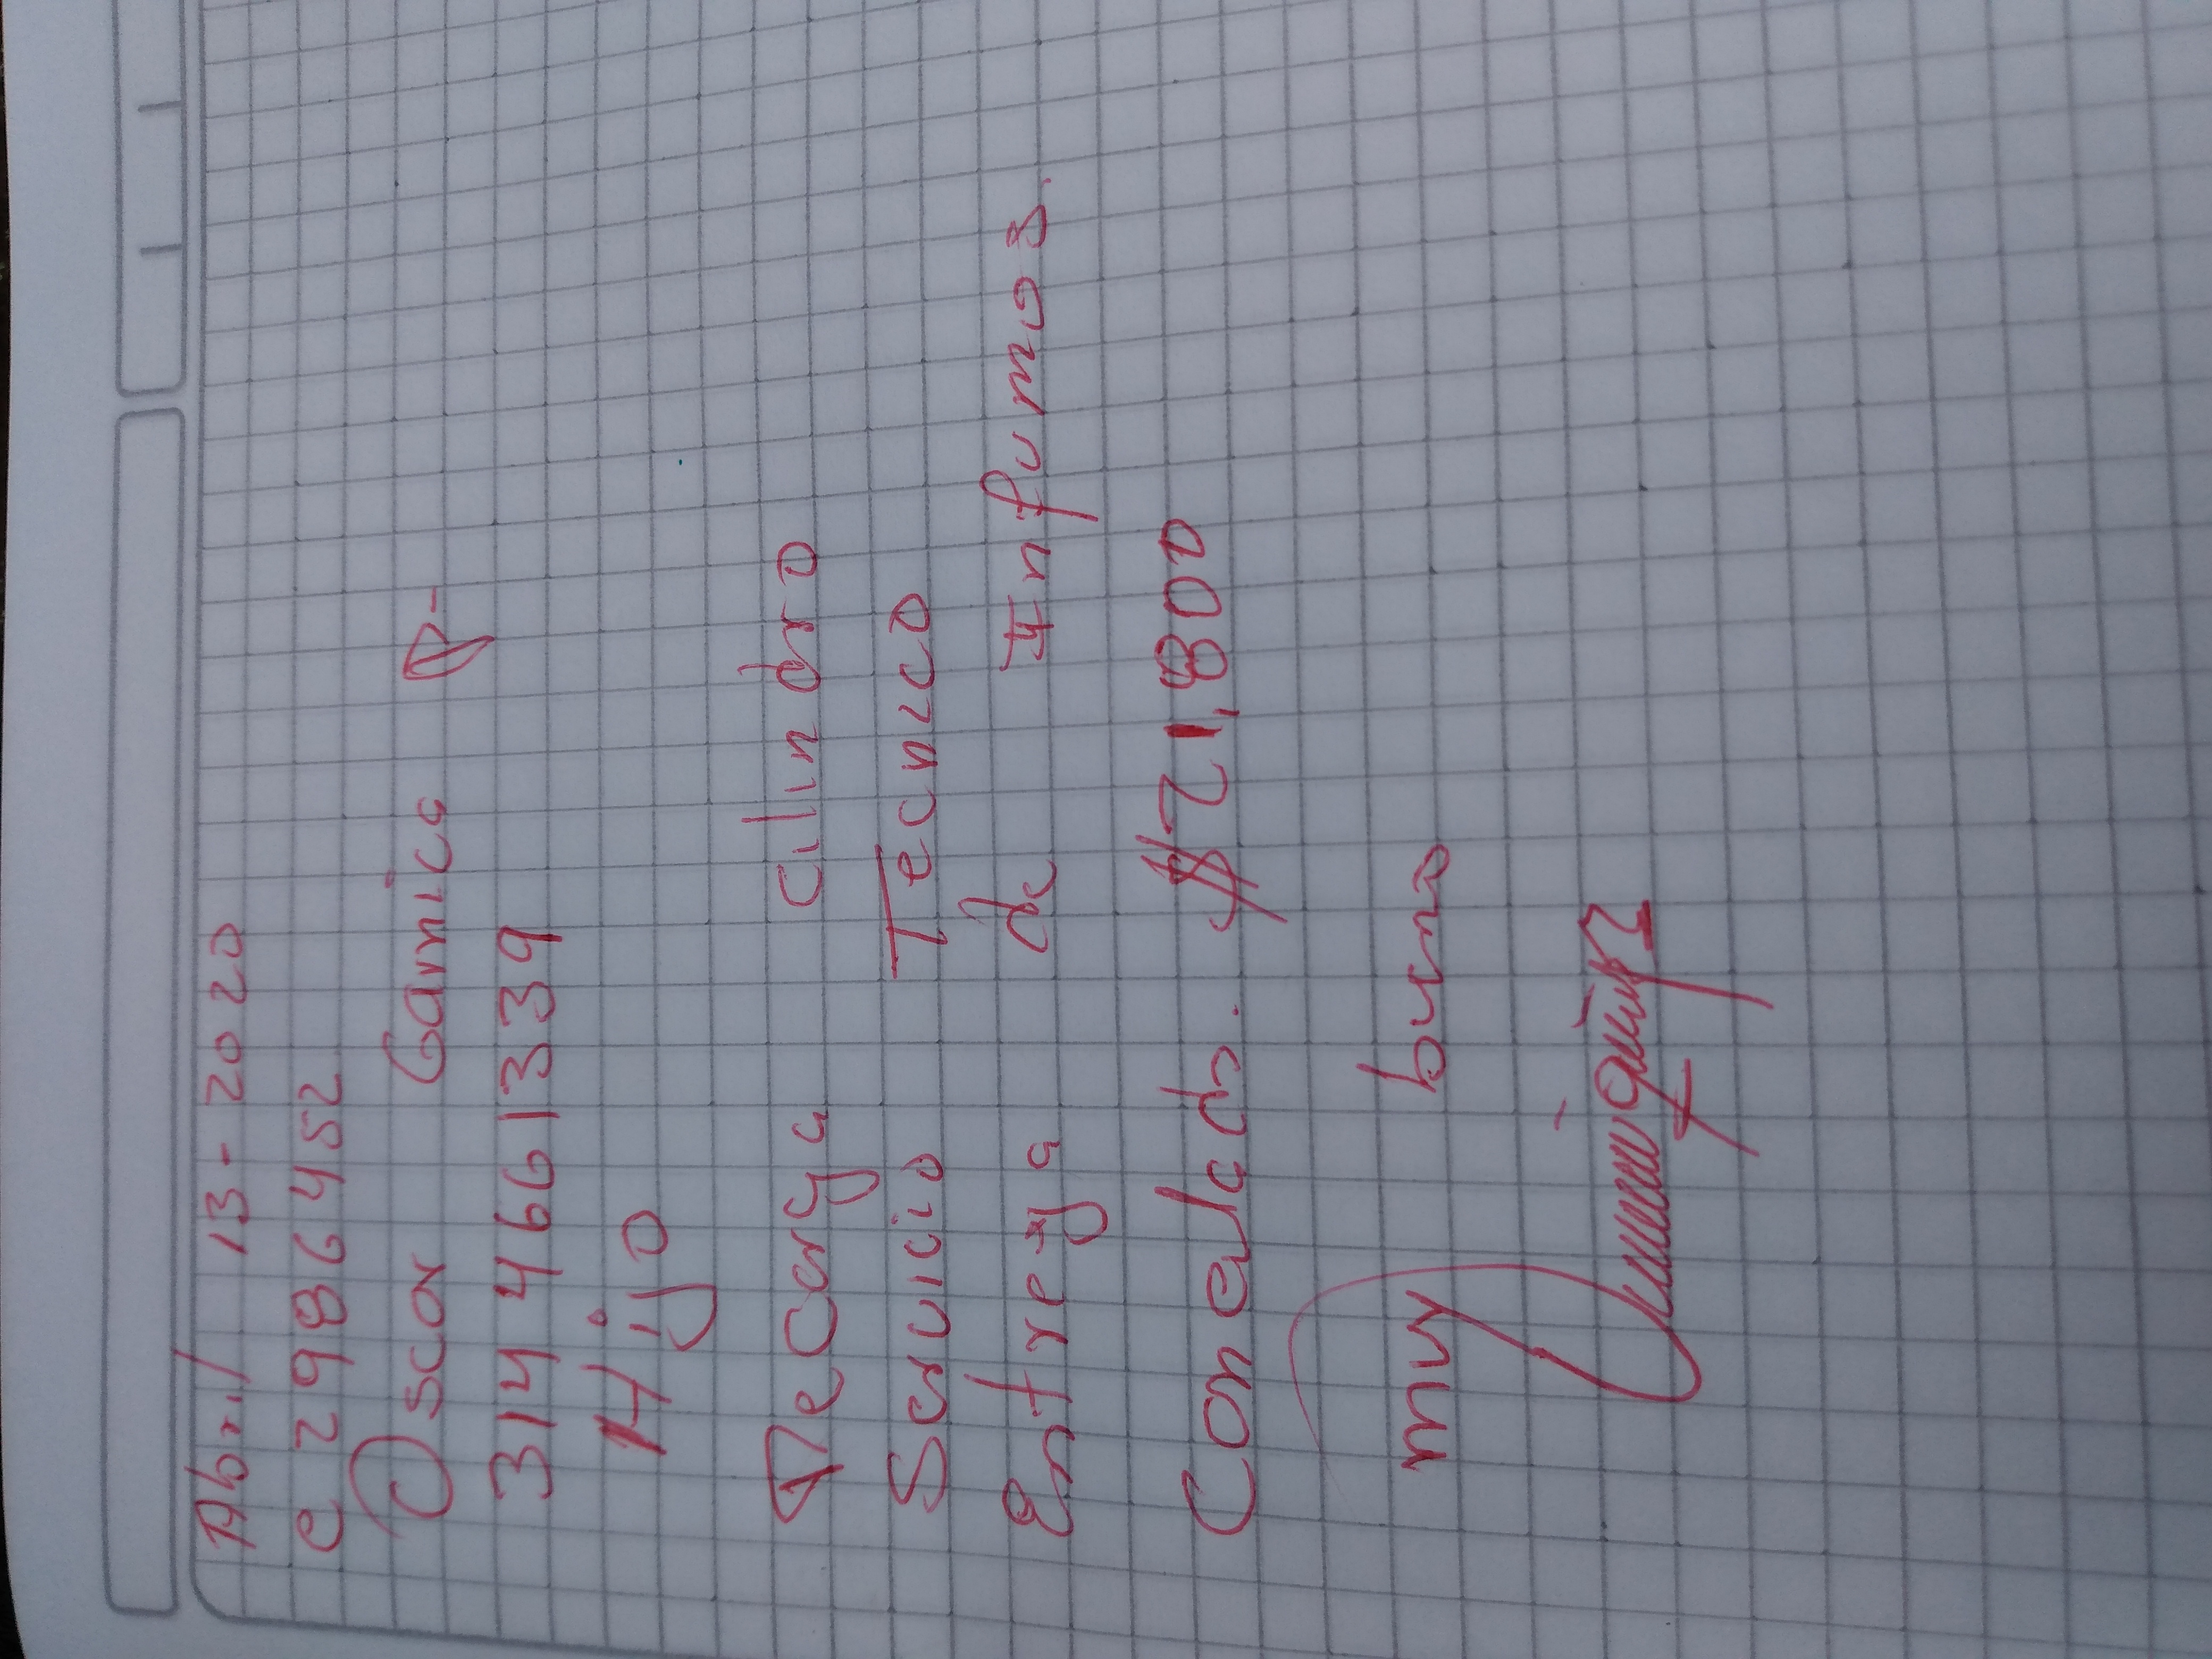 Abril 13-2020
C 29986452
Oscar Garnica R-
314 4661339
Hijo
Recarga cilindro
Servicio Tecnico
Entrega de Infumos.
Conelado. $21,800
muy bueno